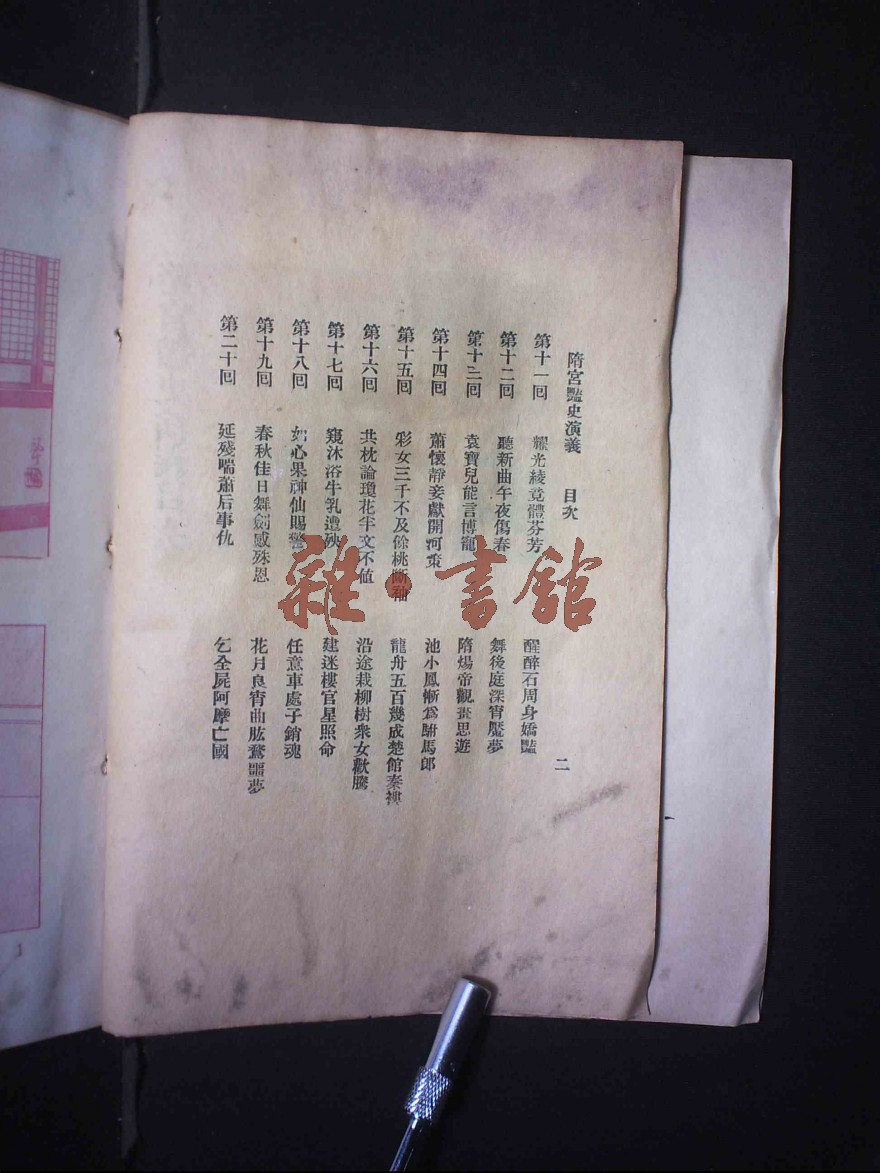 隋宮豔史演義 目次 二
第十一回 耀光綾竟體芬芳 醒醉石周身嬌豔
第十二回 聽新曲午夜傷春 舞後庭深宵魘夢
第十三回 袁寶兒能言博寵 隋煬帝觀畫思遊
第十四回 蕭懷靜妄獻開河策 池小鳳慚為駙馬郎
第十五回 彩女三千不及餘桃斷袖 龍舟五百幾成楚館秦樓
第十六回 共枕論瓊花半文不值 沿途栽柳樹衆女歡騰
第十七回 窺沐浴牛乳遭殃 建迷樓官星照命
第十八回 如心果神仙賜警 任意車處子銷魂
第十九回 春秋佳日舞劍感殊恩 花月良宵曲肱驚噩夢
第二十回 延殘喘蕭后事仇 乞全屍阿摩亡國
雜·書館